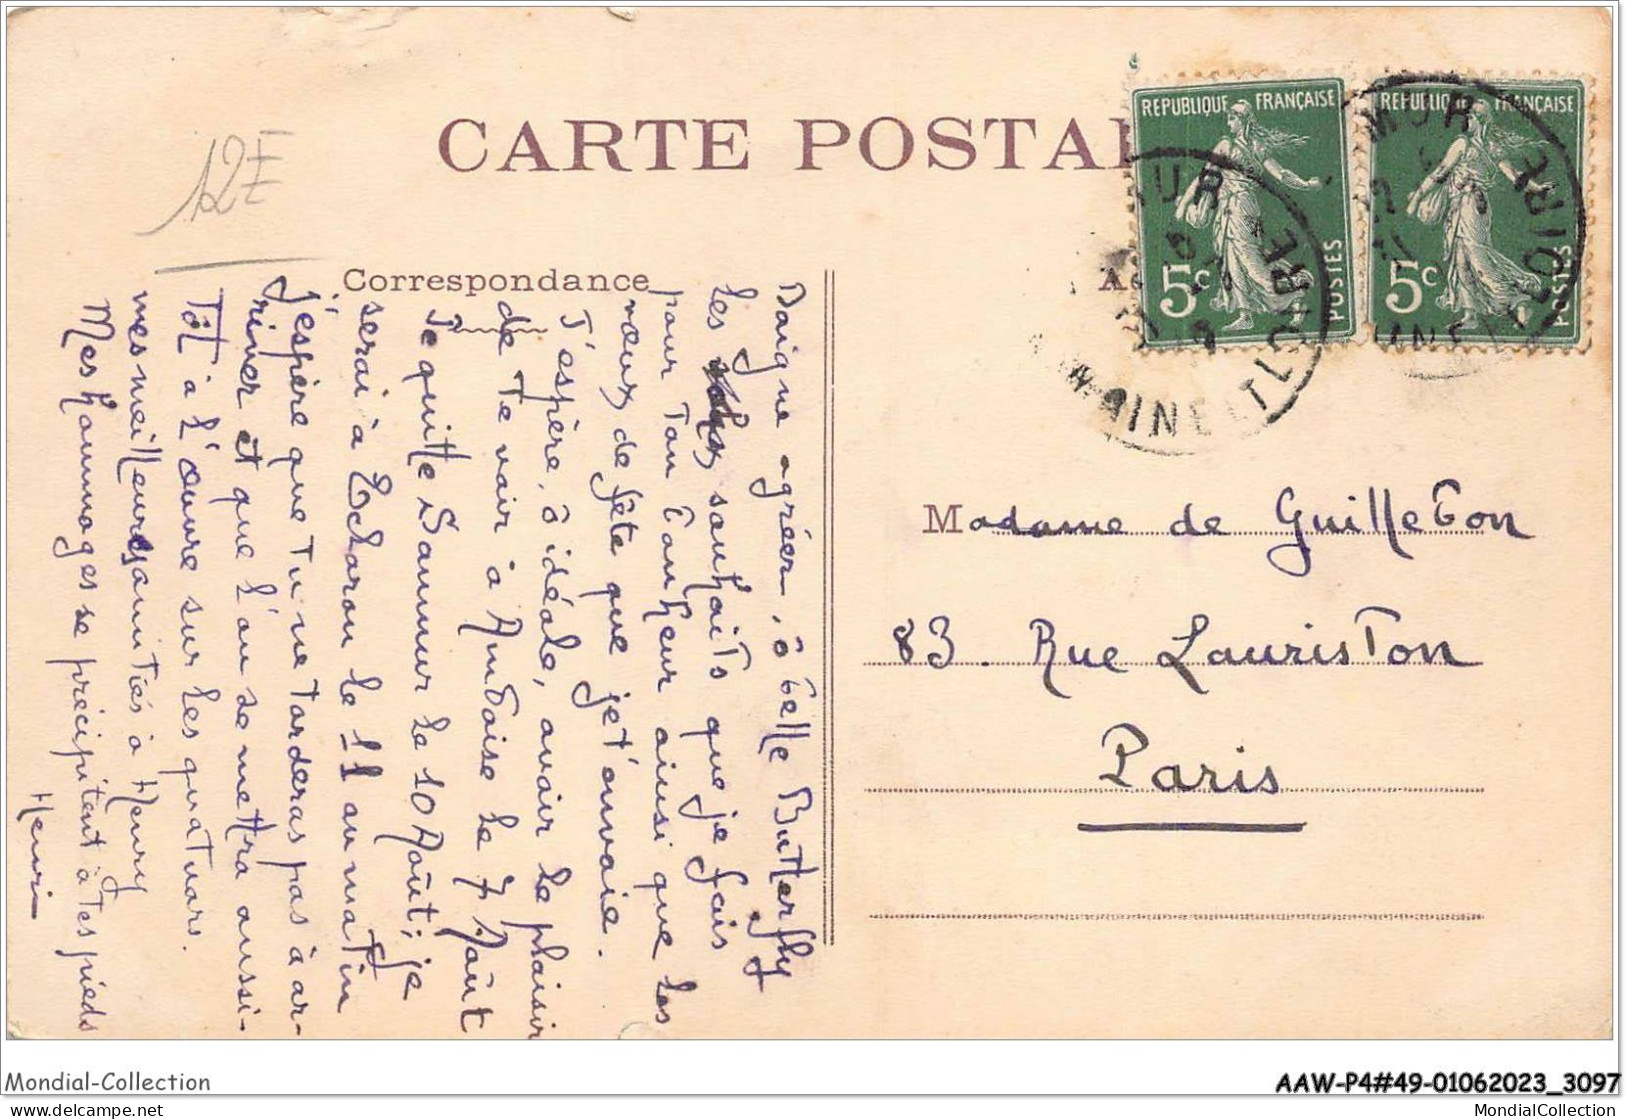 CARTE POSTAL
12E
Correspondance
REPUBLIQUE FRANÇAISE
5c
POSTES
REPUBLIQUE FRANÇAISE
5c
POSTES
MUR
LOIRE
MAINE ET LOIRE
Daigne agréer, ô belle Butterfly
les souhaits que je fais
pour ton bonheur ainsi que les
vœux de fête que je t'envoie.
J'espère, ô idéale, avoir le plaisir
de te voir à Amboise le 7 Août
Je quitte Saumur le 10 Août; je
serai à Echarou le 11 au matin
j'espère que tu ne tarderas pas à ar-
river et que l'on se mettra aussi-
tôt à l'œuvre sur les quatuors.
mes meilleures amitiés à Henry
Mes hommages se précipitent à tes pieds
Henri
Madame de Guillebon
83. Rue Lauriston
Paris
Mondial-Collection
AAW-P4#49-01062023_3097
delcampe.net
MondialCollection